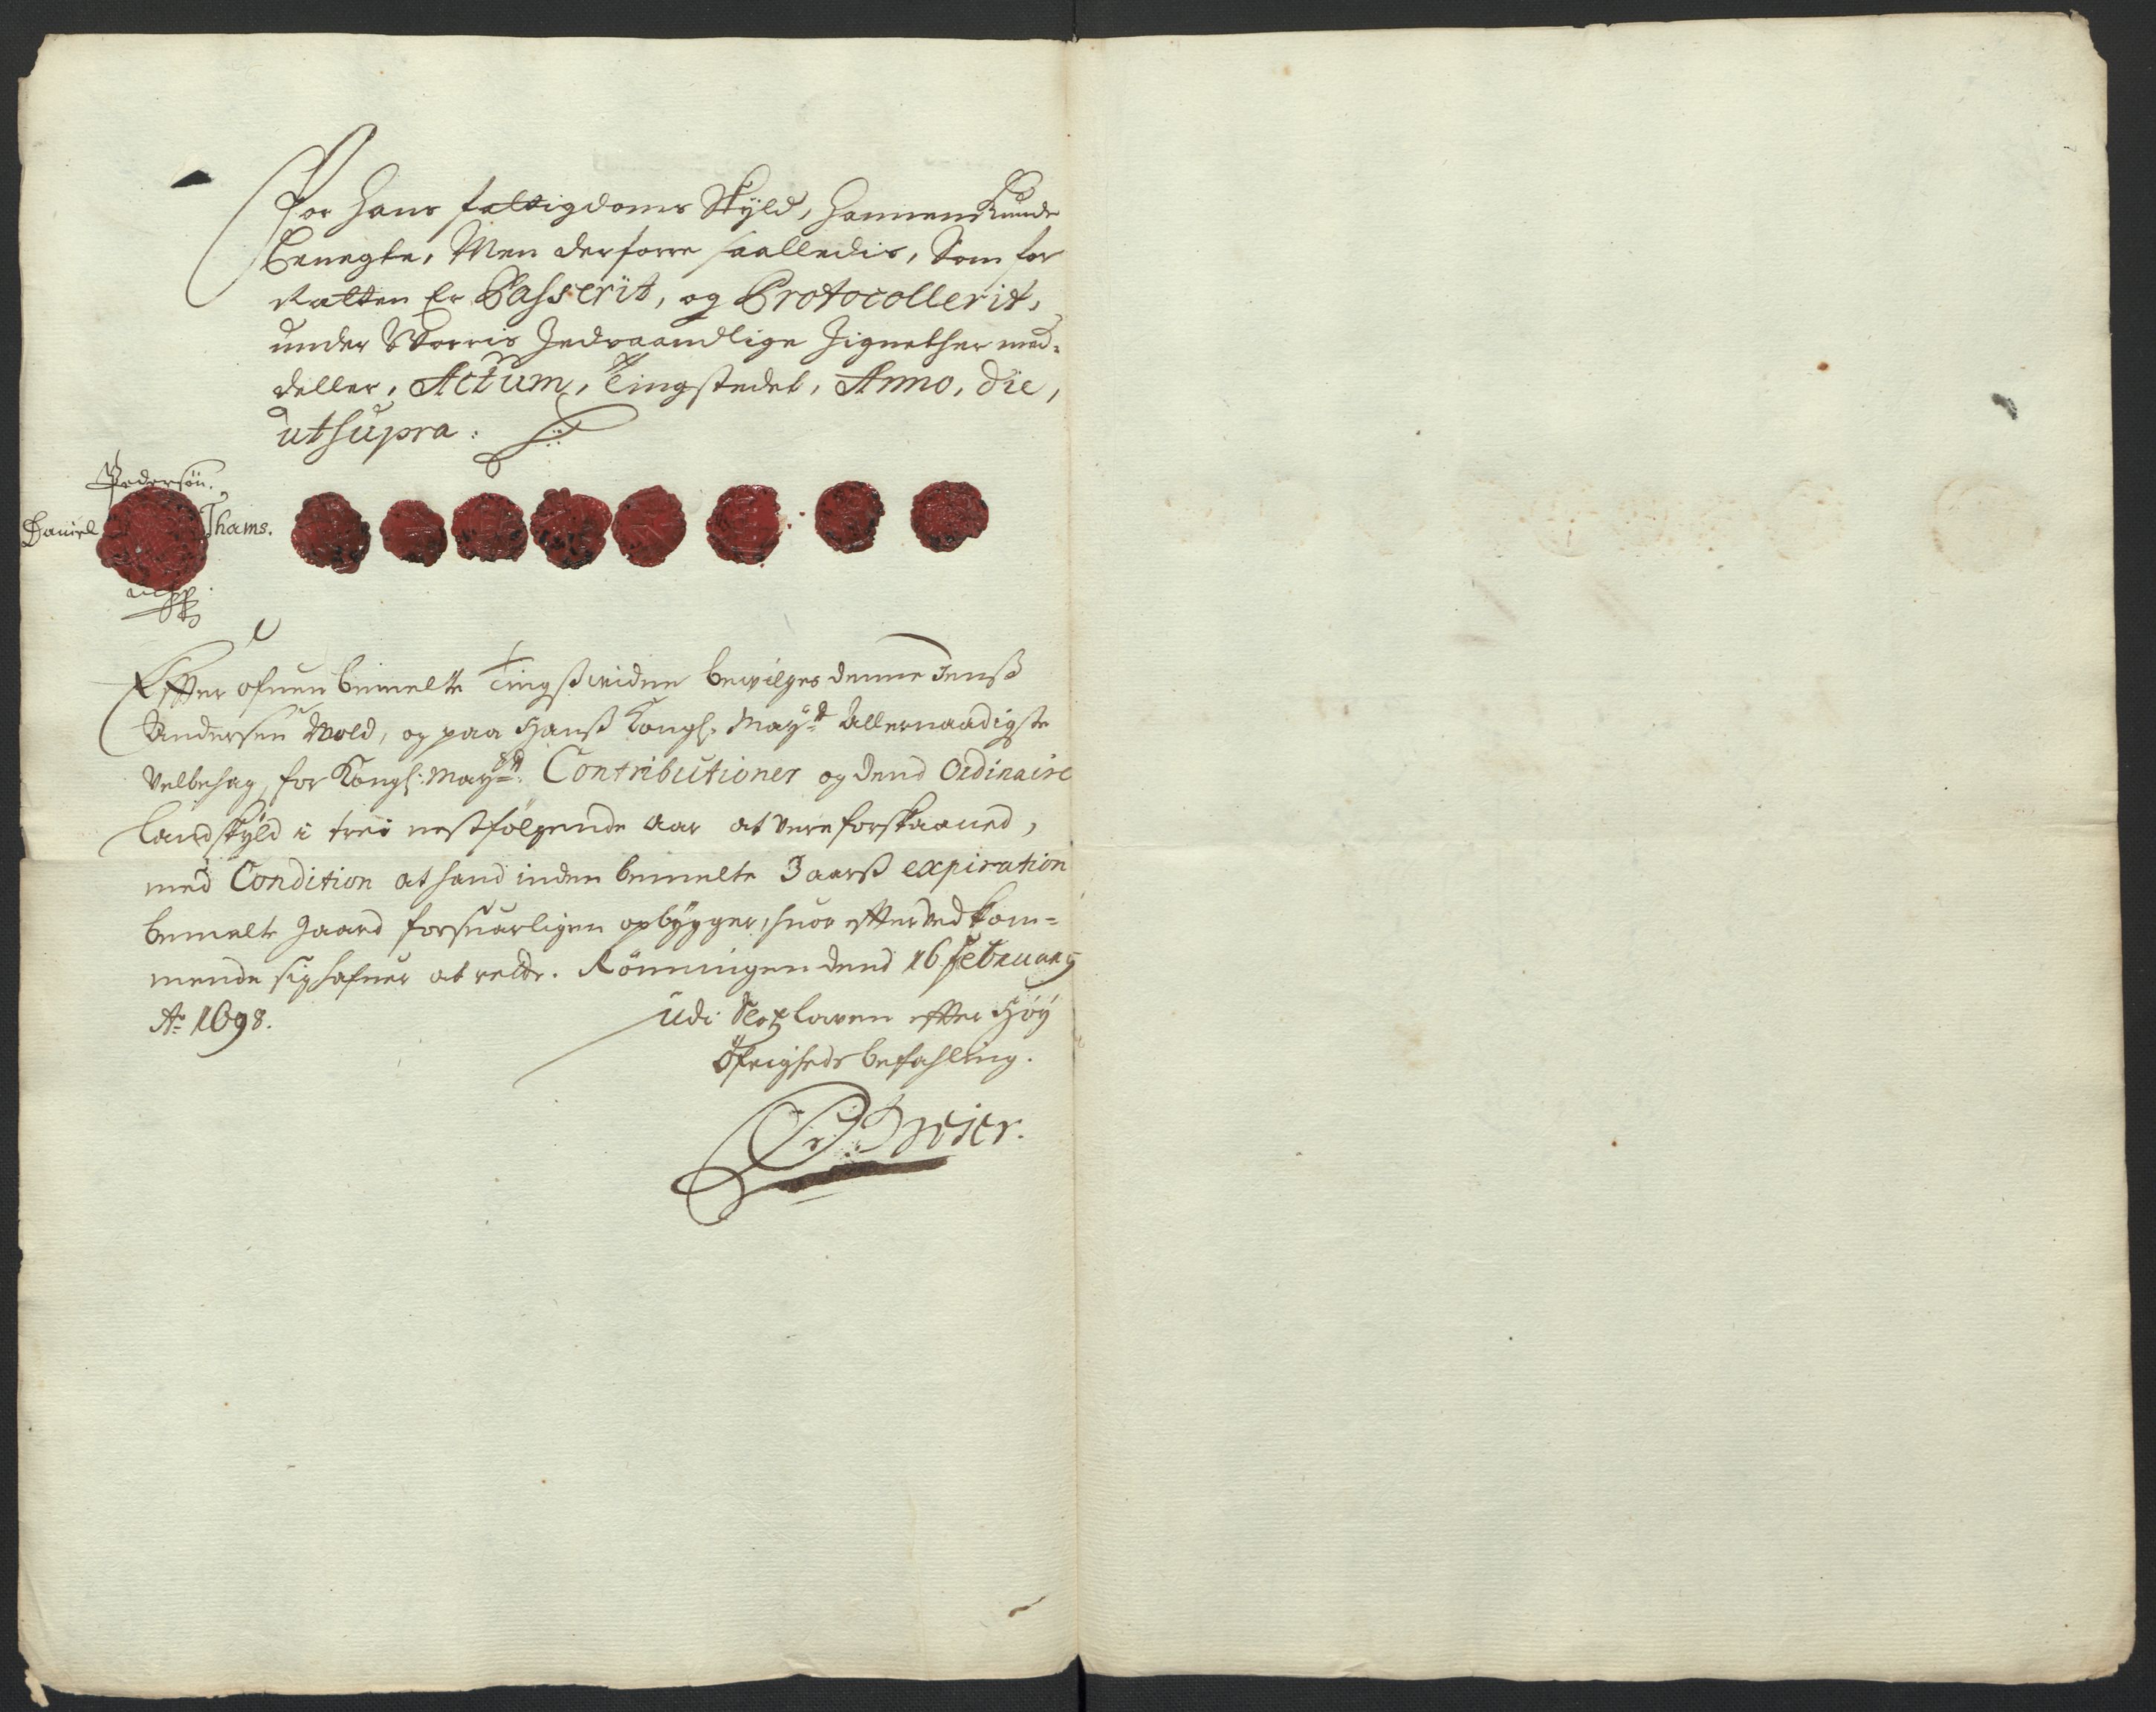 For hans fattigdoms Skyld, hannem Kunde
Benegte, Men derforre saalledis, Som for
Retten Er Passerit, og Protocollerit,
under Worris Zedvaandlige Zignether med=
deller, Actum, Tingstedet, Anno, Die,
utsupra:
Pedersøn.
Daniel Thams.
Effter ofuen bemelte Tingswidne bewilges denne Jenß
Andersen Wold, og paa Hanß Kongl. May:tt Allernaadigste
Velbehag, for Kongl: May:tt: Contributioner og dend Ordinaire
Landskyld i trei nestfølgende aar at vere forskaaned,
med Condition at hand inden bemelte 3 aarß expiration
bemelte gaard forsuarligen opbygger, huor effter Vedkom=
mende sig hafuer at rette. Rönningen dend 16 February
Ao 1698.
Udi Slotzlowen effter Höy
Öfrigheds befahling.